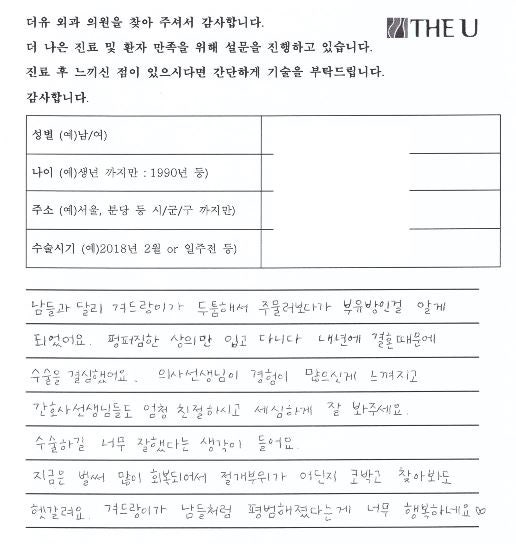 더유 외과 의원을 찾아 주셔서 감사합니다.
THE U
더 나은 진료 및 환자 만족을 위해 설문을 진행하고 있습니다.
진료 후 느끼신 점이 있으시다면 간단하게 기술을 부탁드립니다.
감사합니다.
성별 (예)남/여)
나이 (예)생년 까지만 : 1990년 등)
주소 (예)서울, 분당 등 시/군/구 까지만)
수술시기 (예)2018년 2월 or 일주전 등)
남들과 달리 겨드랑이가 두툼해서 주물러보다가 부유방인걸 알게
되었어요. 펑퍼짐한 상의만 입고 다니다 내년에 결혼때문에
수술을 결심했어요. 의사선생님이 경험이 많으신게 느껴지고
간호사선생님들도 엄청 친절하시고 세심하게 잘 봐주세요.
수술하길 너무 잘했다는 생각이 들어요.
지금은 벌써 많이 회복되어서 절개부위가 어딘지 코박고 찾아봐도
헷갈려요. 겨드랑이가 남들처럼 평범해졌다는게 너무 행복하네요♡